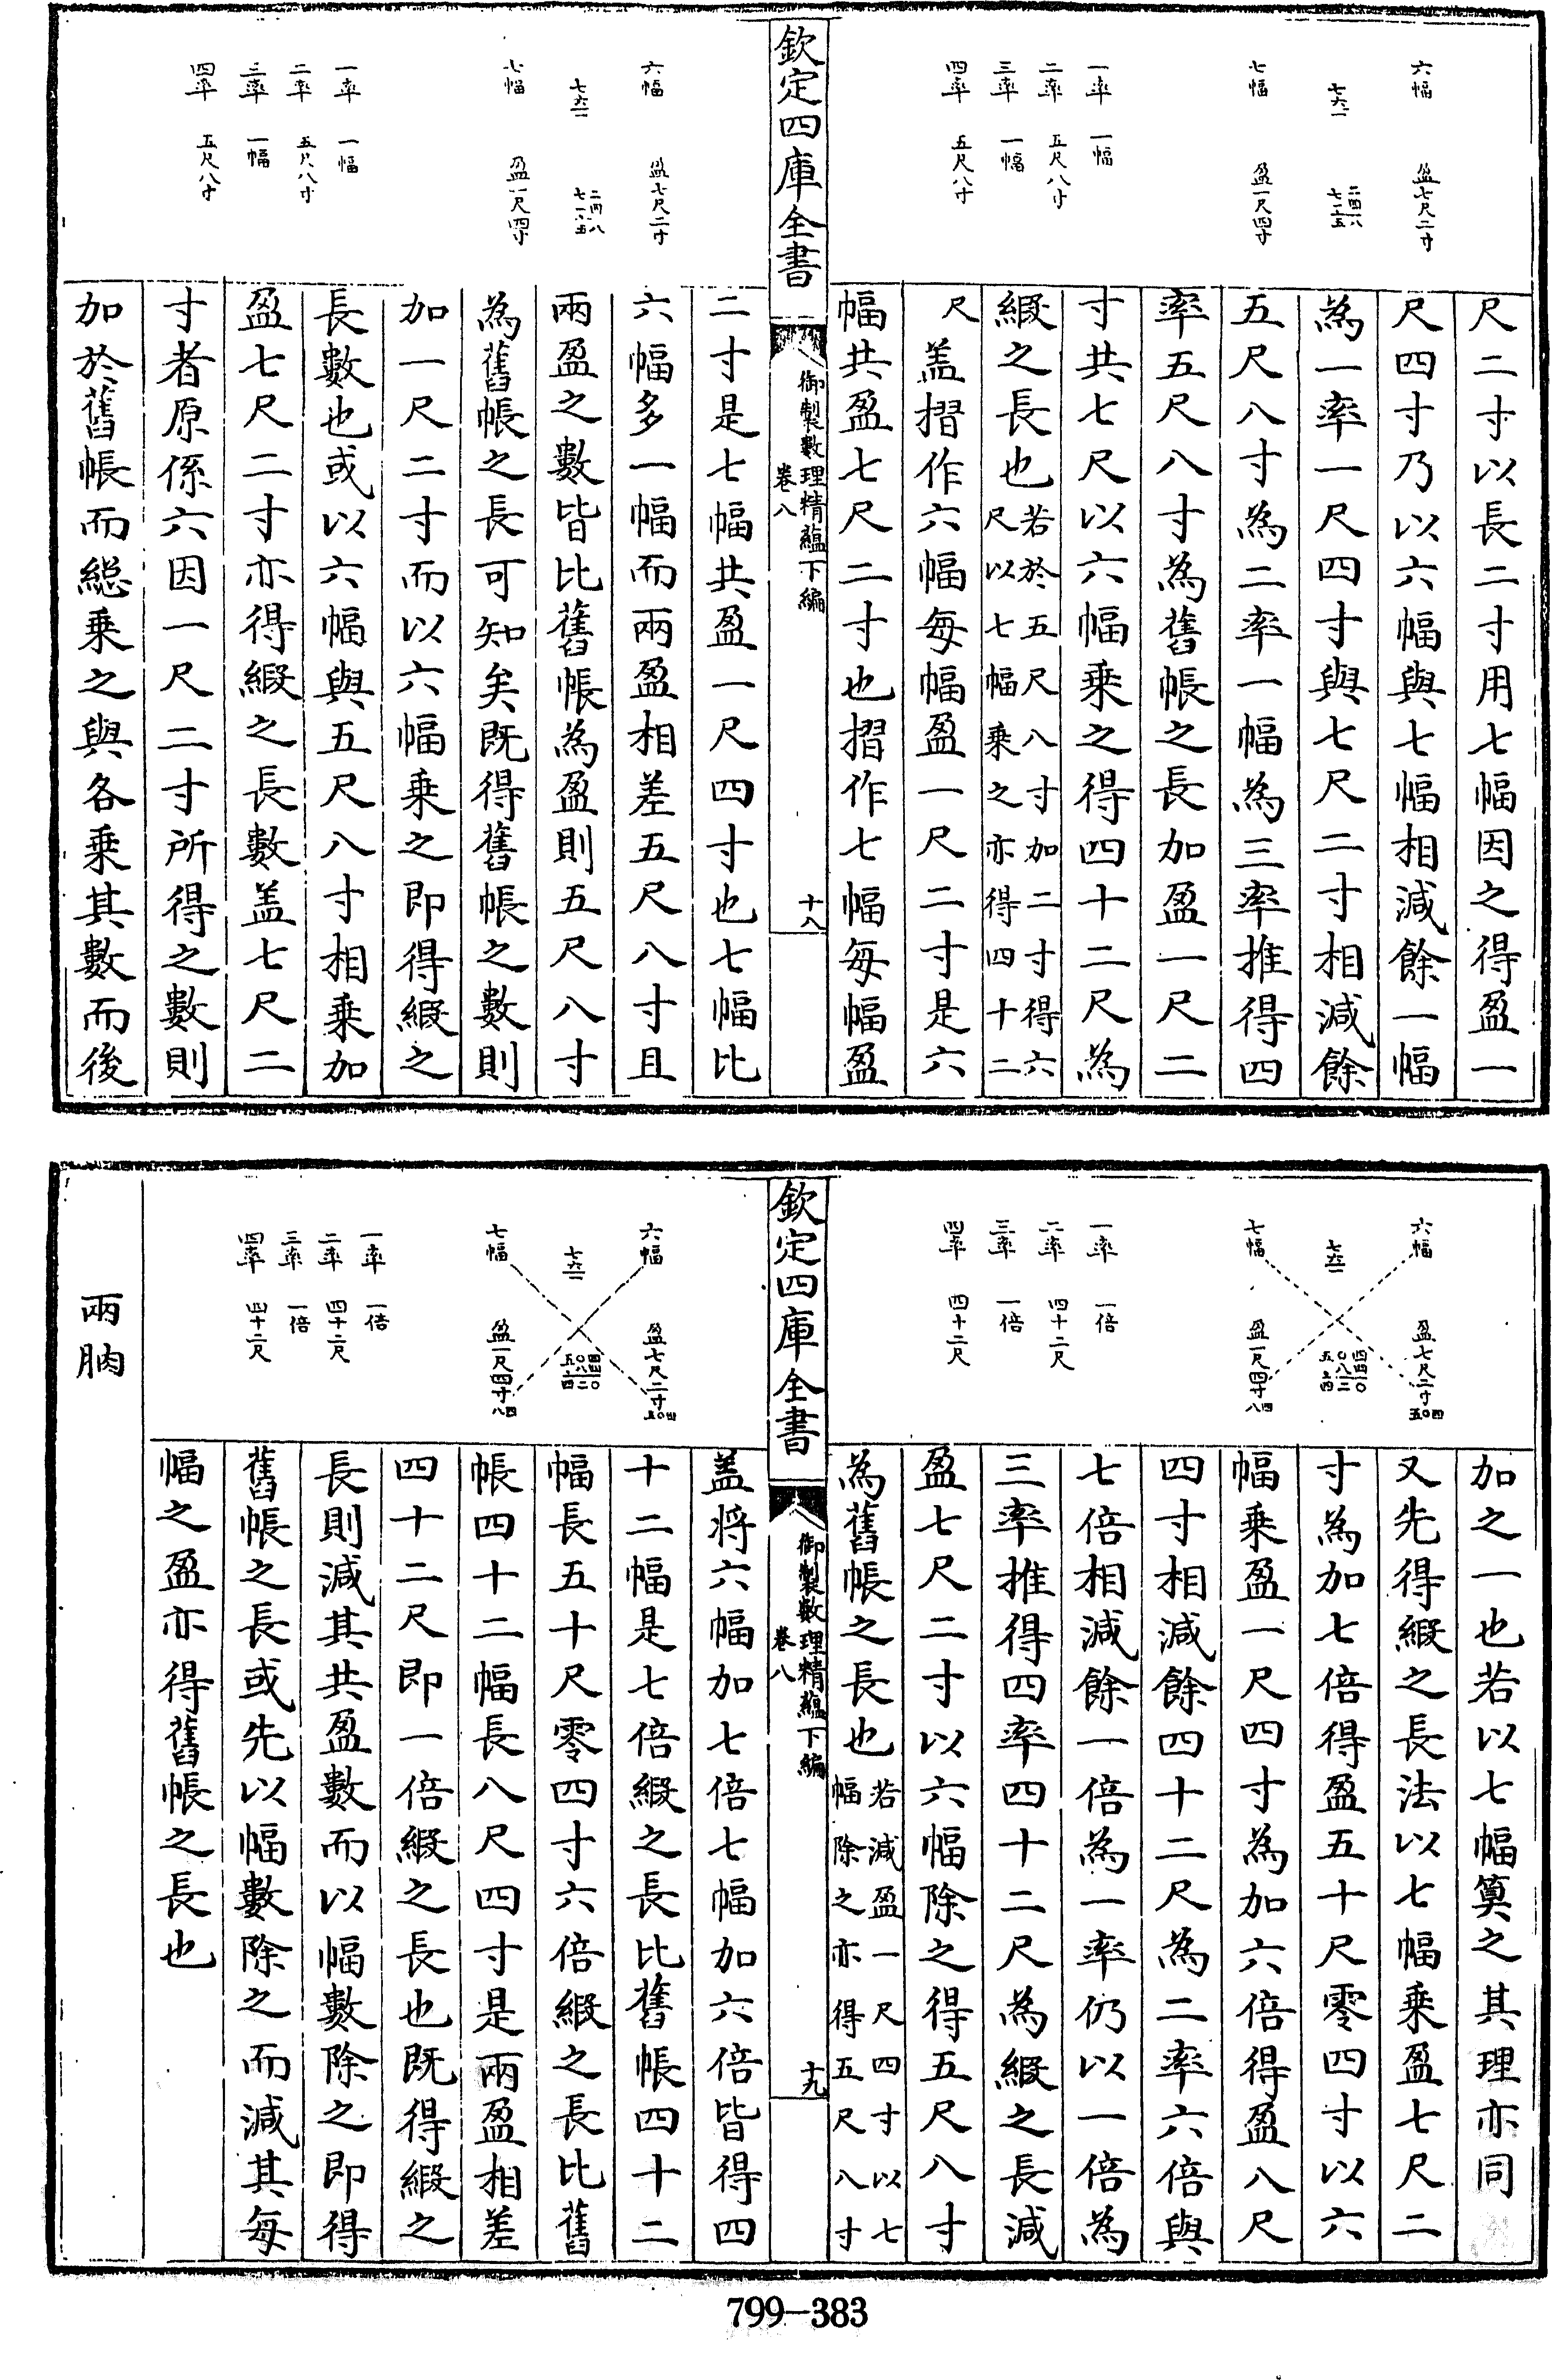 六幅　盈七尺二寸
七六一　二四八　七一五
七幅　盈一尺四寸
一率　一幅
二率　五尺八寸
三率　一幅
四率　五尺八寸
尺二寸以長二寸用七幅因之得盈一
尺四寸乃以六幅與七幅相減餘一幅
為一率一尺四寸與七尺二寸相減餘
五尺八寸為二率一幅為三率推得四
率五尺八寸為舊帳之長加盈一尺二
寸共七尺以六幅乘之得四十二尺為
緞之長也若於五尺八寸加二寸得六
尺以七幅乘之亦得四十二
尺盖摺作六幅每幅盈一尺二寸是六
幅共盈七尺二寸也摺作七幅每幅盈
欽定四庫全書
御製數理精蘊下編
卷八
十八
六幅　盈七尺二寸
七六一
七幅　盈一尺四寸
一率　一幅
二率　五尺八寸
三率　一幅
四率　五尺八寸
二寸是七幅共盈一尺四寸也七幅比
六幅多一幅而兩盈相差五尺八寸且
兩盈之數皆比舊帳為盈則五尺八寸
為舊帳之長可知矣既得舊帳之數則
加一尺二寸而以六幅乘之即得緞之
長數也或以六幅與五尺八寸相乘加
盈七尺二寸亦得緞之長數盖七尺二
寸者原係六因一尺二寸所得之數則
加於舊帳而総乘之與各乘其數而後
六幅　盈七尺二寸
七六一
七幅　盈一尺四寸
一率　一倍
二率　四十二尺
三率　一倍
四率　四十二尺
加之一也若以七幅算之其理亦同
又先得緞之長法以七幅乘盈七尺二
寸為加七倍得盈五十尺零四寸以六
幅乘盈一尺四寸為加六倍得盈八尺
四寸相減餘四十二尺為二率六倍與
七倍相減餘一倍為一率仍以一倍為
三率推得四率四十二尺為緞之長減
盈七尺二寸以六幅除之得五尺八寸
為舊帳之長也若減盈一尺四寸以七
幅除之亦得五尺八寸
欽定四庫全書
御製數理精蘊下編
卷八
十九
六幅　盈七尺二寸
七六一
七幅　盈一尺四寸
一率　一倍
二率　四十二尺
三率　一倍
四率　四十二尺
盖将六幅加七倍七幅加六倍皆得四
十二幅是七倍緞之長比舊帳四十二
幅長五十尺零四寸六倍緞之長比舊
帳四十二幅長八尺四寸是兩盈相差
四十二尺即一倍緞之長也既得緞之
長則減其共盈數而以幅數除之即得
舊帳之長或先以幅數除之而減其每
幅之盈亦得舊帳之長也
兩朒
799-383